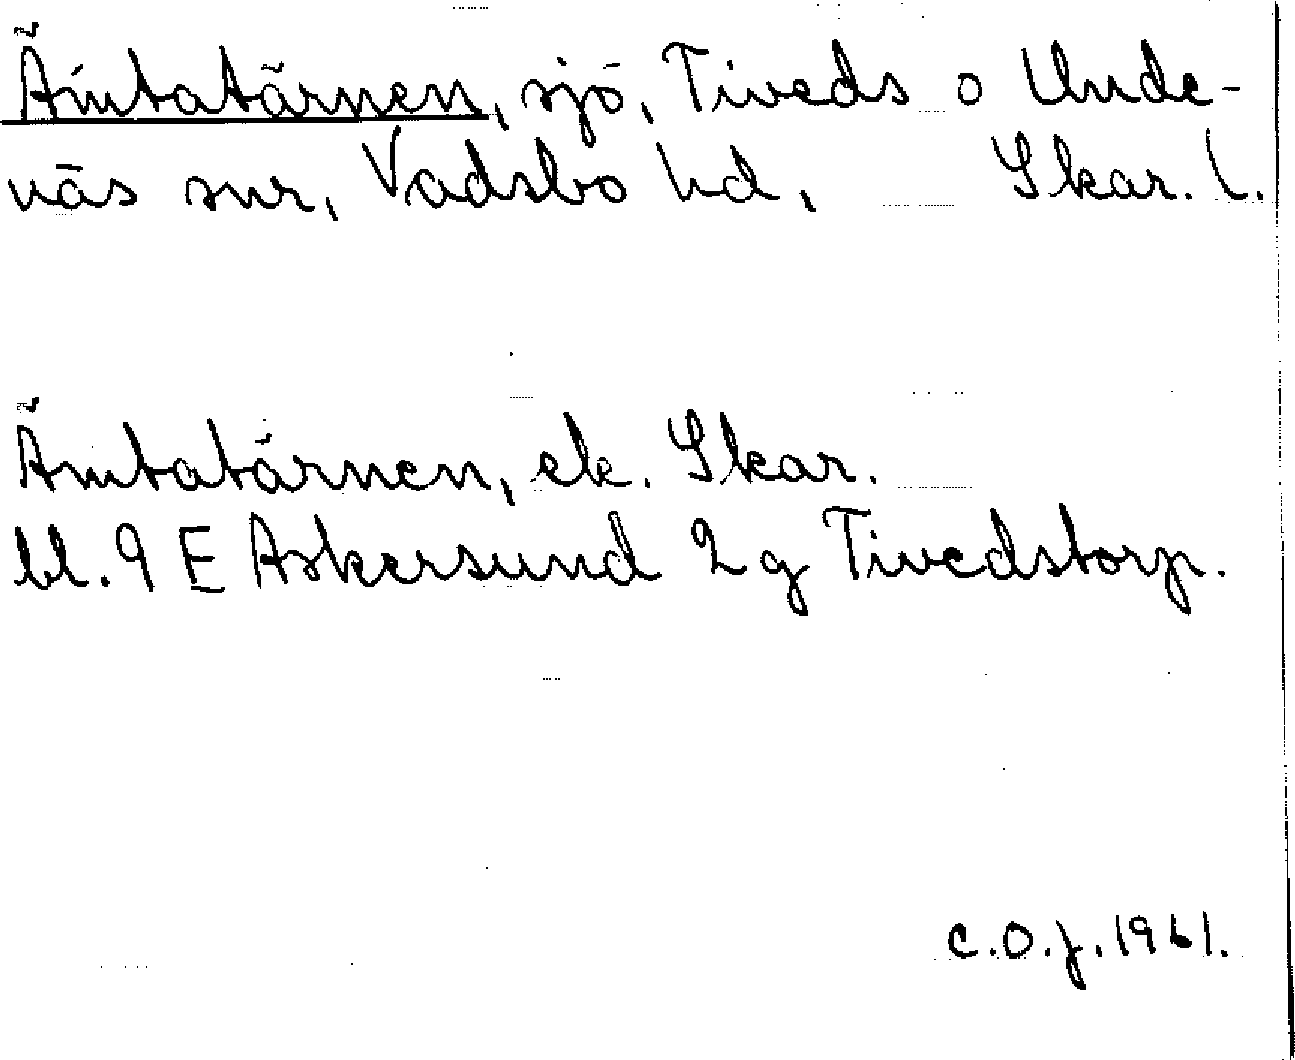 Ämtatärnen, sjö, Tiveds o Unde-
näs snr, Vadsbo hd, Skar. l.
Ämtatärnen, ek. Skar.
bl. 9 E Askersund 2 g Tivedstorp.
C.O.J. 1961.